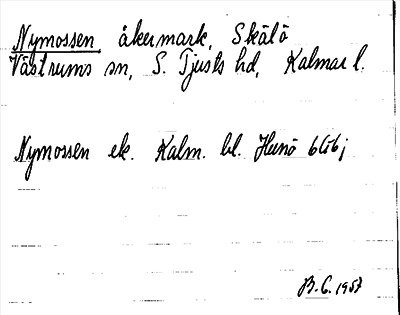 Nymossen, åkermark, Skälö
Västrums sn, S. Tjusts hd, Kalmar l.
Nymossen ek. Kalm. bl. Hunö 6G6j
B.G. 1957